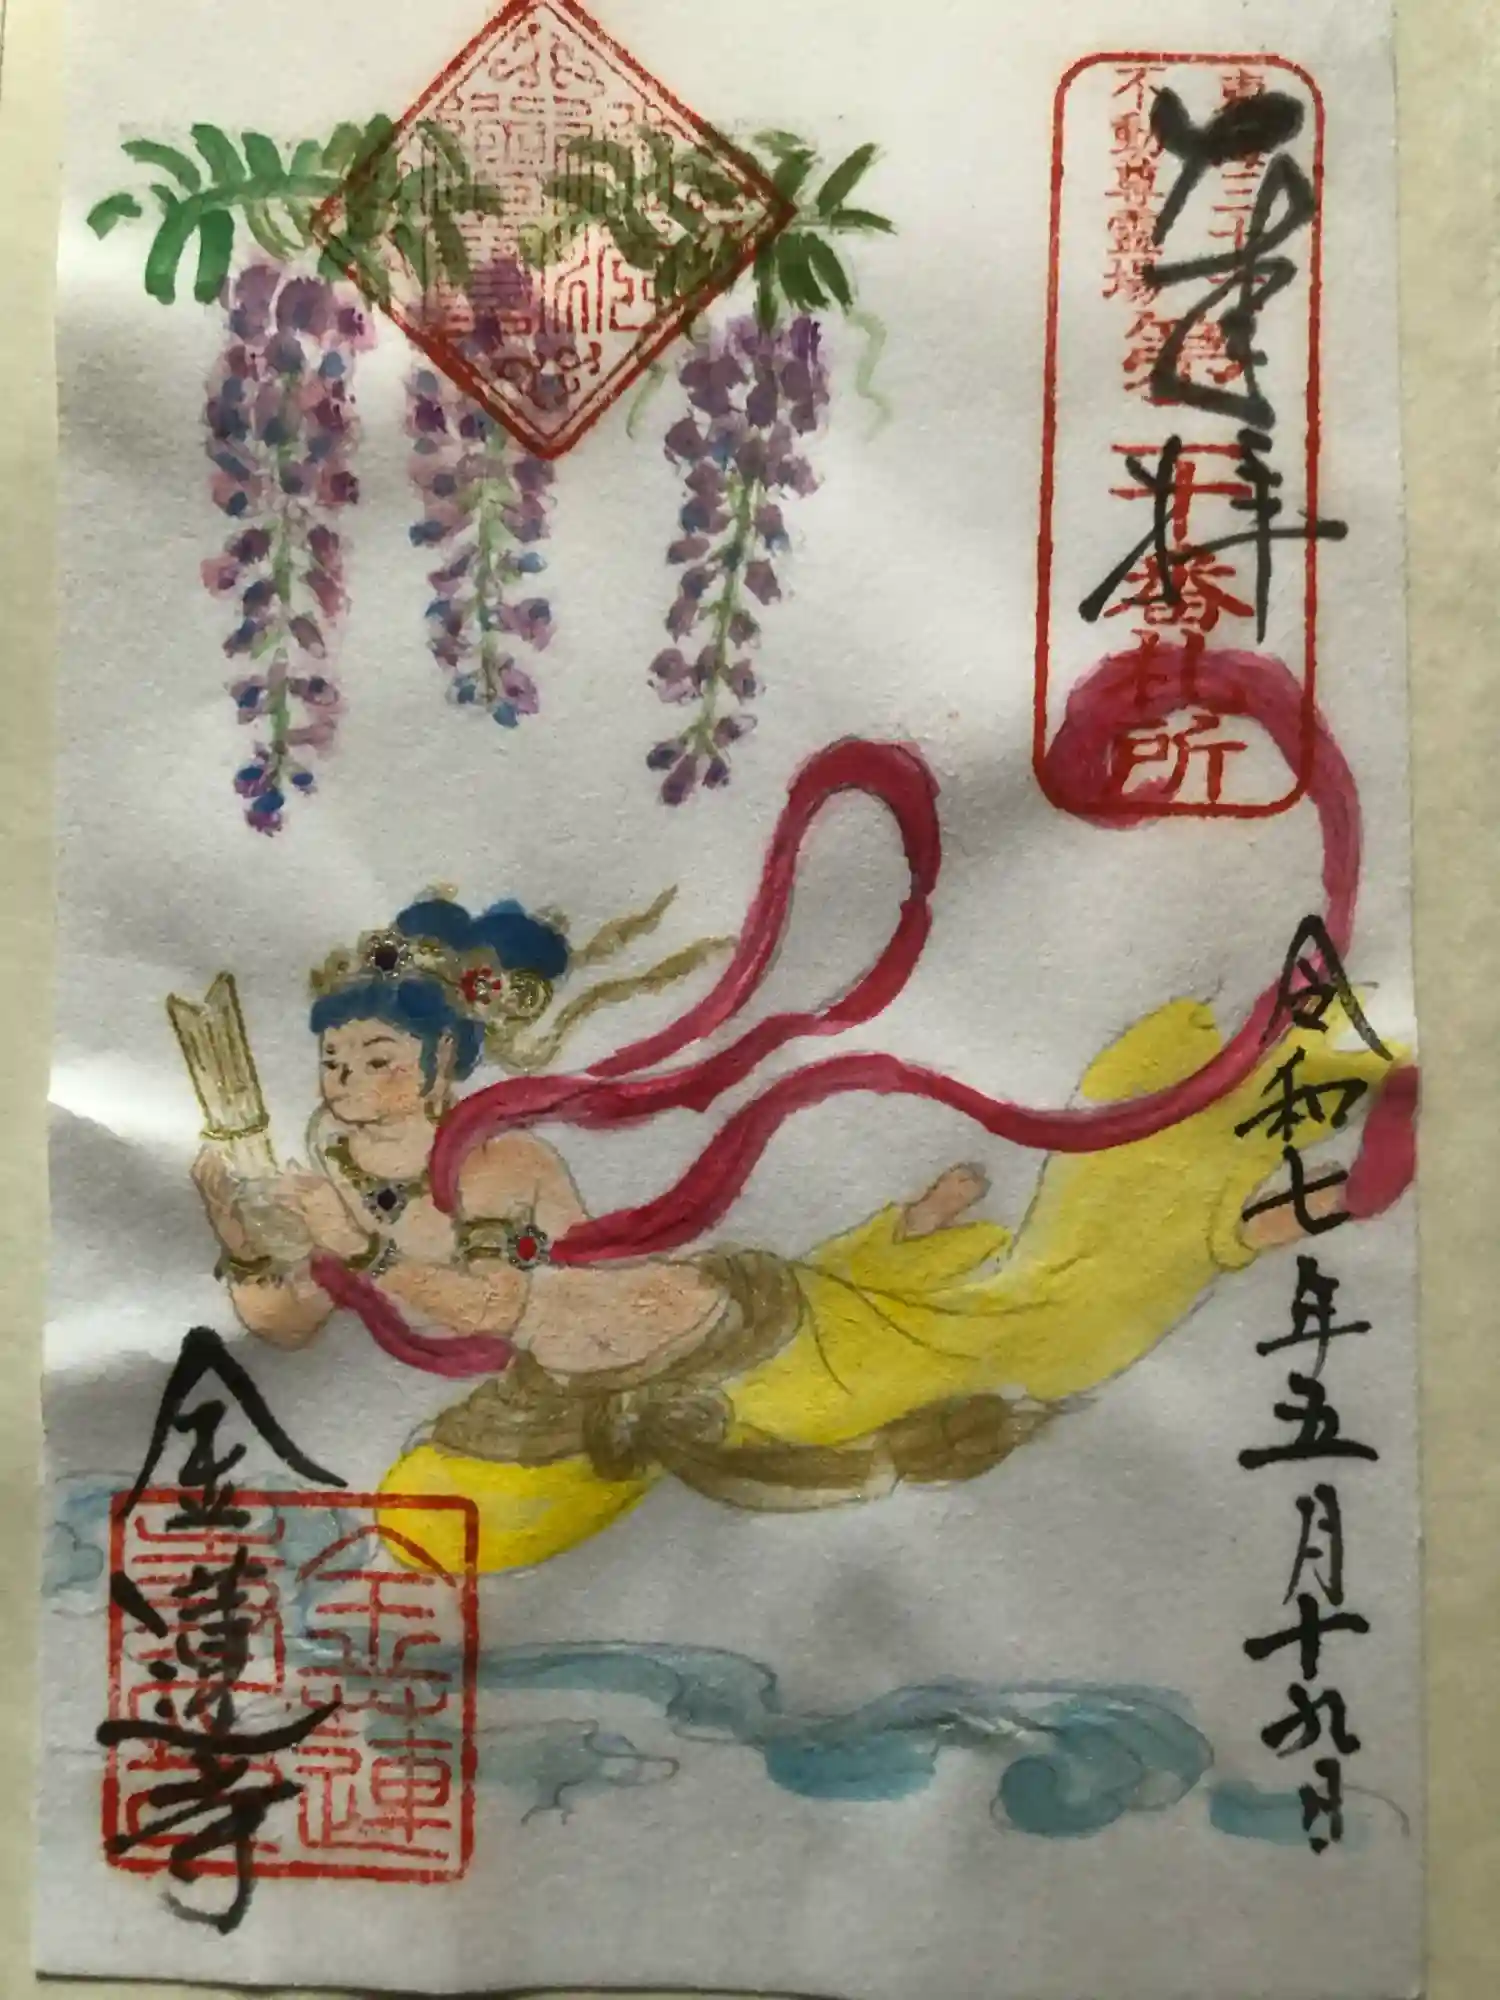 奉拝
不動尊霊場
第十番札所
令和七年五月十九日
金蓮寺
金蓮